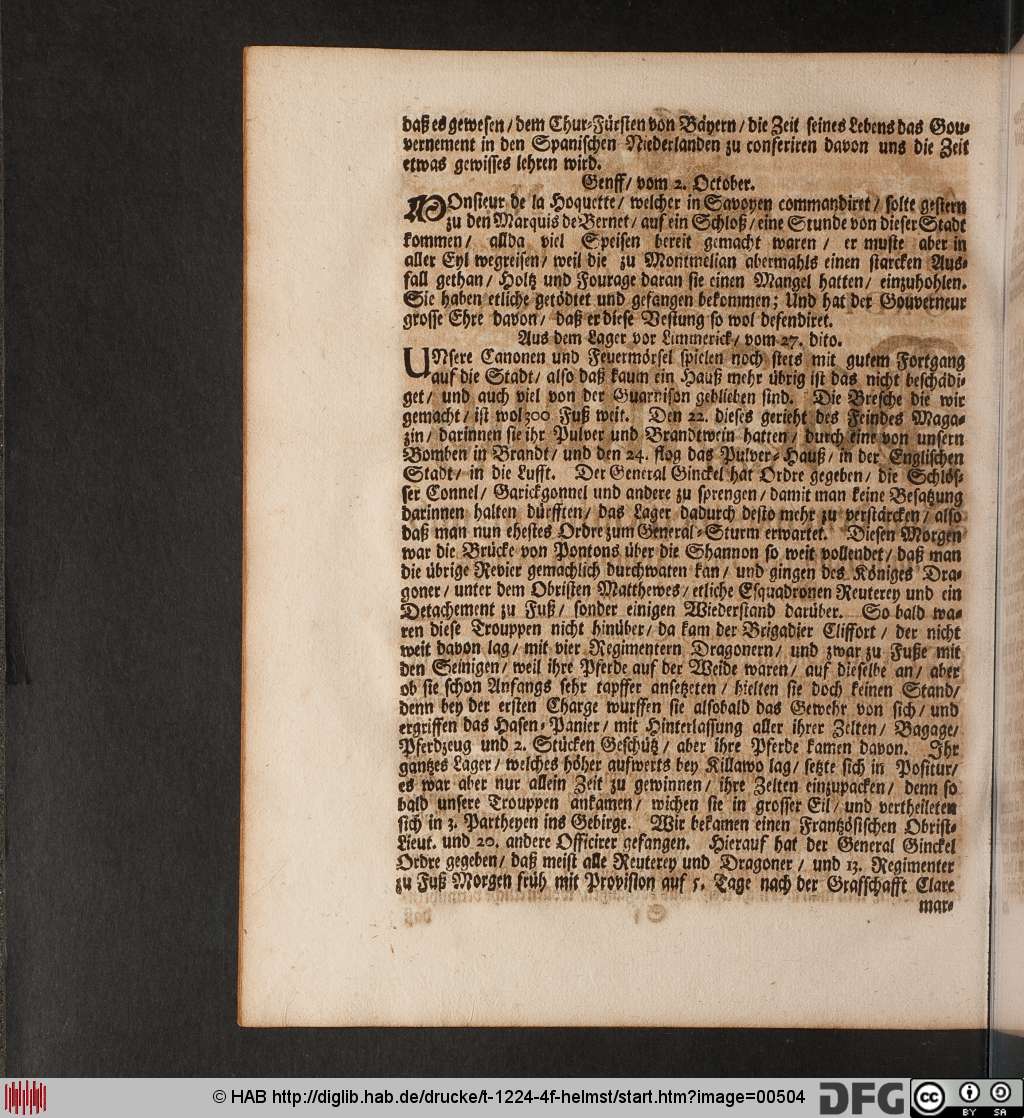 daß es gewesen / dem Chur-Fürsten von Bäyern / die Zeit seines Lebens das Gou-
vernement in den Spanischen Niederlanden zu conferiren davon uns die Zeit
etwas gewisses lehren wird.
Genff / vom 2. October.
MOnsieur de la Hoquette / welcher in Savoyen commandiret / solte gestern
zu den Marquis de Bernet / auf ein Schloß / eine Stunde von dieser Stadt
kommen / allda viel Speisen bereit gemacht waren / er muste aber in
aller Eyl wegreisen / weil die zu Montmelian abermahls einen starcken Aus-
fall gethan / Holtz und Fourage daran sie einen Mangel hatten / einzuhohlen.
Sie haben etliche getödtet und gefangen bekommen; Und hat der Gouverneur
grosse Ehre davon / daß er diese Vestung so wol defendiret.
Aus dem Lager vor Limmerick / vom 27. dito.
UNsere Canonen und Feuermörsel spielen noch stets mit gutem Fortgang
auf die Stadt / also daß kaum ein Hauß mehr übrig ist das nicht beschädi-
get / und auch viel von der Guarnison geblieben sind. Die Bresche die wir
gemacht / ist wol 300 Fuß weit. Den 22. dieses gerieht des Feindes Maga-
zin / darinnen sie ihr Pulver und Brandtwein hatten / durch eine von unsern
Bomben in Brandt / und den 24. flog das Pulver-Hauß / in der Englischen
Stadt / in die Lufft. Der General Ginckel hat Ordre gegeben / die Schlös-
ser Connel / Garickgonnel und andere zu sprengen / damit man keine Besatzung
darinnen halten dürfften / das Lager dadurch desto mehr zu verstärcken / also
daß man nun ehestes Ordre zum General-Sturm erwartet. Diesen Morgen
war die Brücke von Pontons über die Shannon so weit vollendet / daß man
die übrige Revier gemachlich durchwaten kan / und gingen des Königes Dra-
goner / unter dem Obristen Matthewes / etliche Esquadronen Reuterey und ein
Detachement zu Fuß / sonder einigen Wiederstand darüber. So bald wa-
ren diese Trouppen nicht hinüber / da kam der Brigadier Cliffort / der nicht
weit davon lag / mit vier Regimentern Dragonern / und zwar zu Fuße mit
den Seinigen / weil ihre Pferde auf der Weide waren / auf dieselbe an / aber
ob sie schon Anfangs sehr tapffer ansetzeten / hielten sie doch keinen Stand /
denn bey der ersten Charge wurffen sie alsobald das Gewehr von sich / und
ergriffen das Hasen-Panier / mit Hinterlassung aller ihrer Zelten / Bagage /
Pferdzeug und 2. Stücken Geschütz / aber ihre Pferde kamen davon. Ihr
gantzes Lager / welches höher aufwerts bey Killawo lag / setzte sich in Positur /
es war aber nur allein Zeit zu gewinnen / ihre Zelten einzupacken / denn so
bald unsere Trouppen ankamen / wichen sie in grosser Eil / und vertheileten
sich in 3. Partheyen ins Gebirge. Wir bekamen einen Frantzösischen Obrist-
Lieut. und 20. andere Officirer gefangen. Hierauf hat der General Ginckel
Ordre gegeben / daß meist alle Reuterey und Dragoner / und 13. Regimenter
zu Fuß Morgen früh mit Provision auf 5. Tage nach der Grafschafft Clare
mar-
© HAB http://diglib.hab.de/drucke/t-1224-4f-helmst/start.htm?image=00504
DFG
cc BY SA